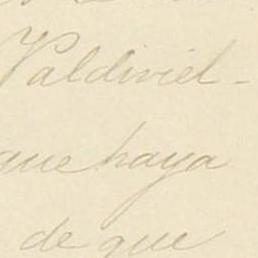 Valdiviel-
que haya
de que